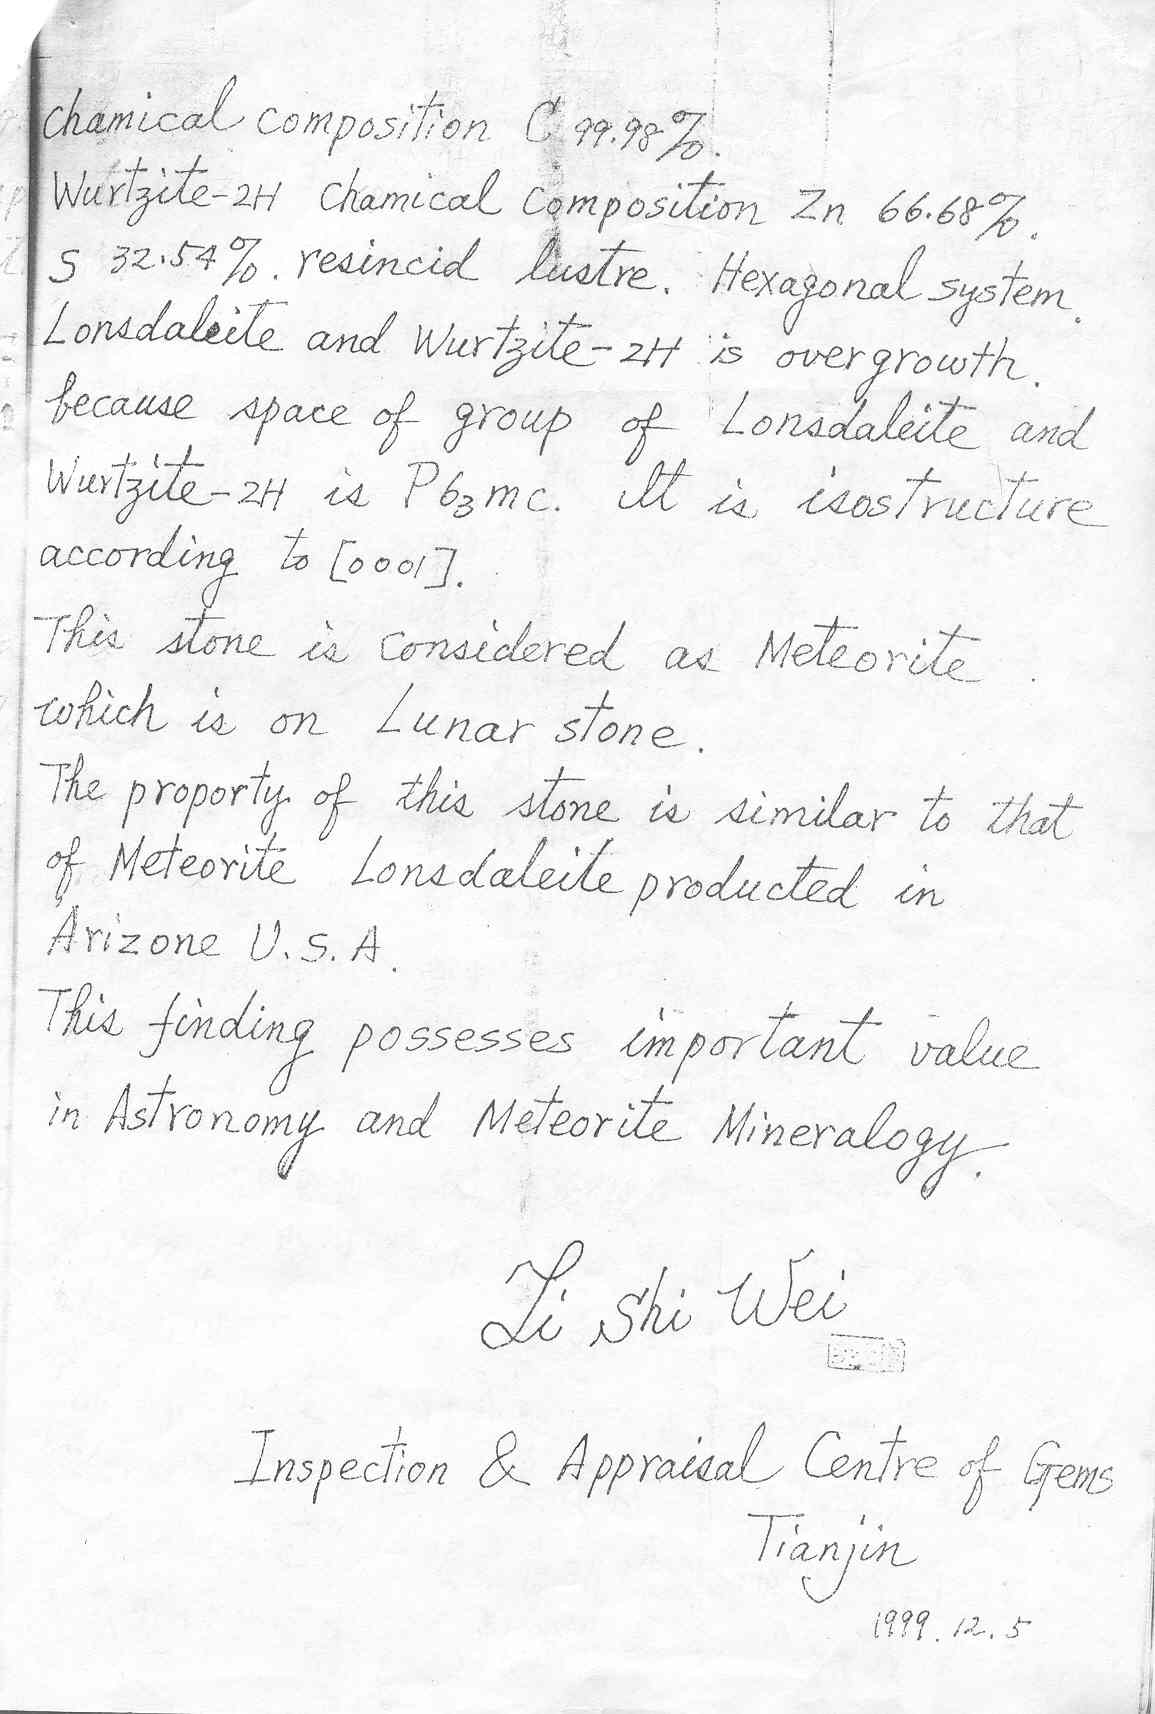 Chamical composition C 99.98%.
Wurtzite-2H Chamical Composition Zn 66.68%.
S 32.54%. resincid lustre. Hexagonal system.
Lonsdaleite and Wurtzite-2H is overgrowth.
because space of group of Lonsdaleite and
Wurtzite-2H is P6₃mc. It is isostructure
according to [0001].
This stone is considered as Meteorite.
which is on Lunar stone.
The proporty of this stone is similar to that
of Meteorite Lonsdaleite producted in
Arizone U.S.A.
This finding possesses important value
in Astronomy and Meteorite Mineralogy.
Li Shi Wei
Inspection & Appraisal Centre of Gems
Tianjin
1999.12.5